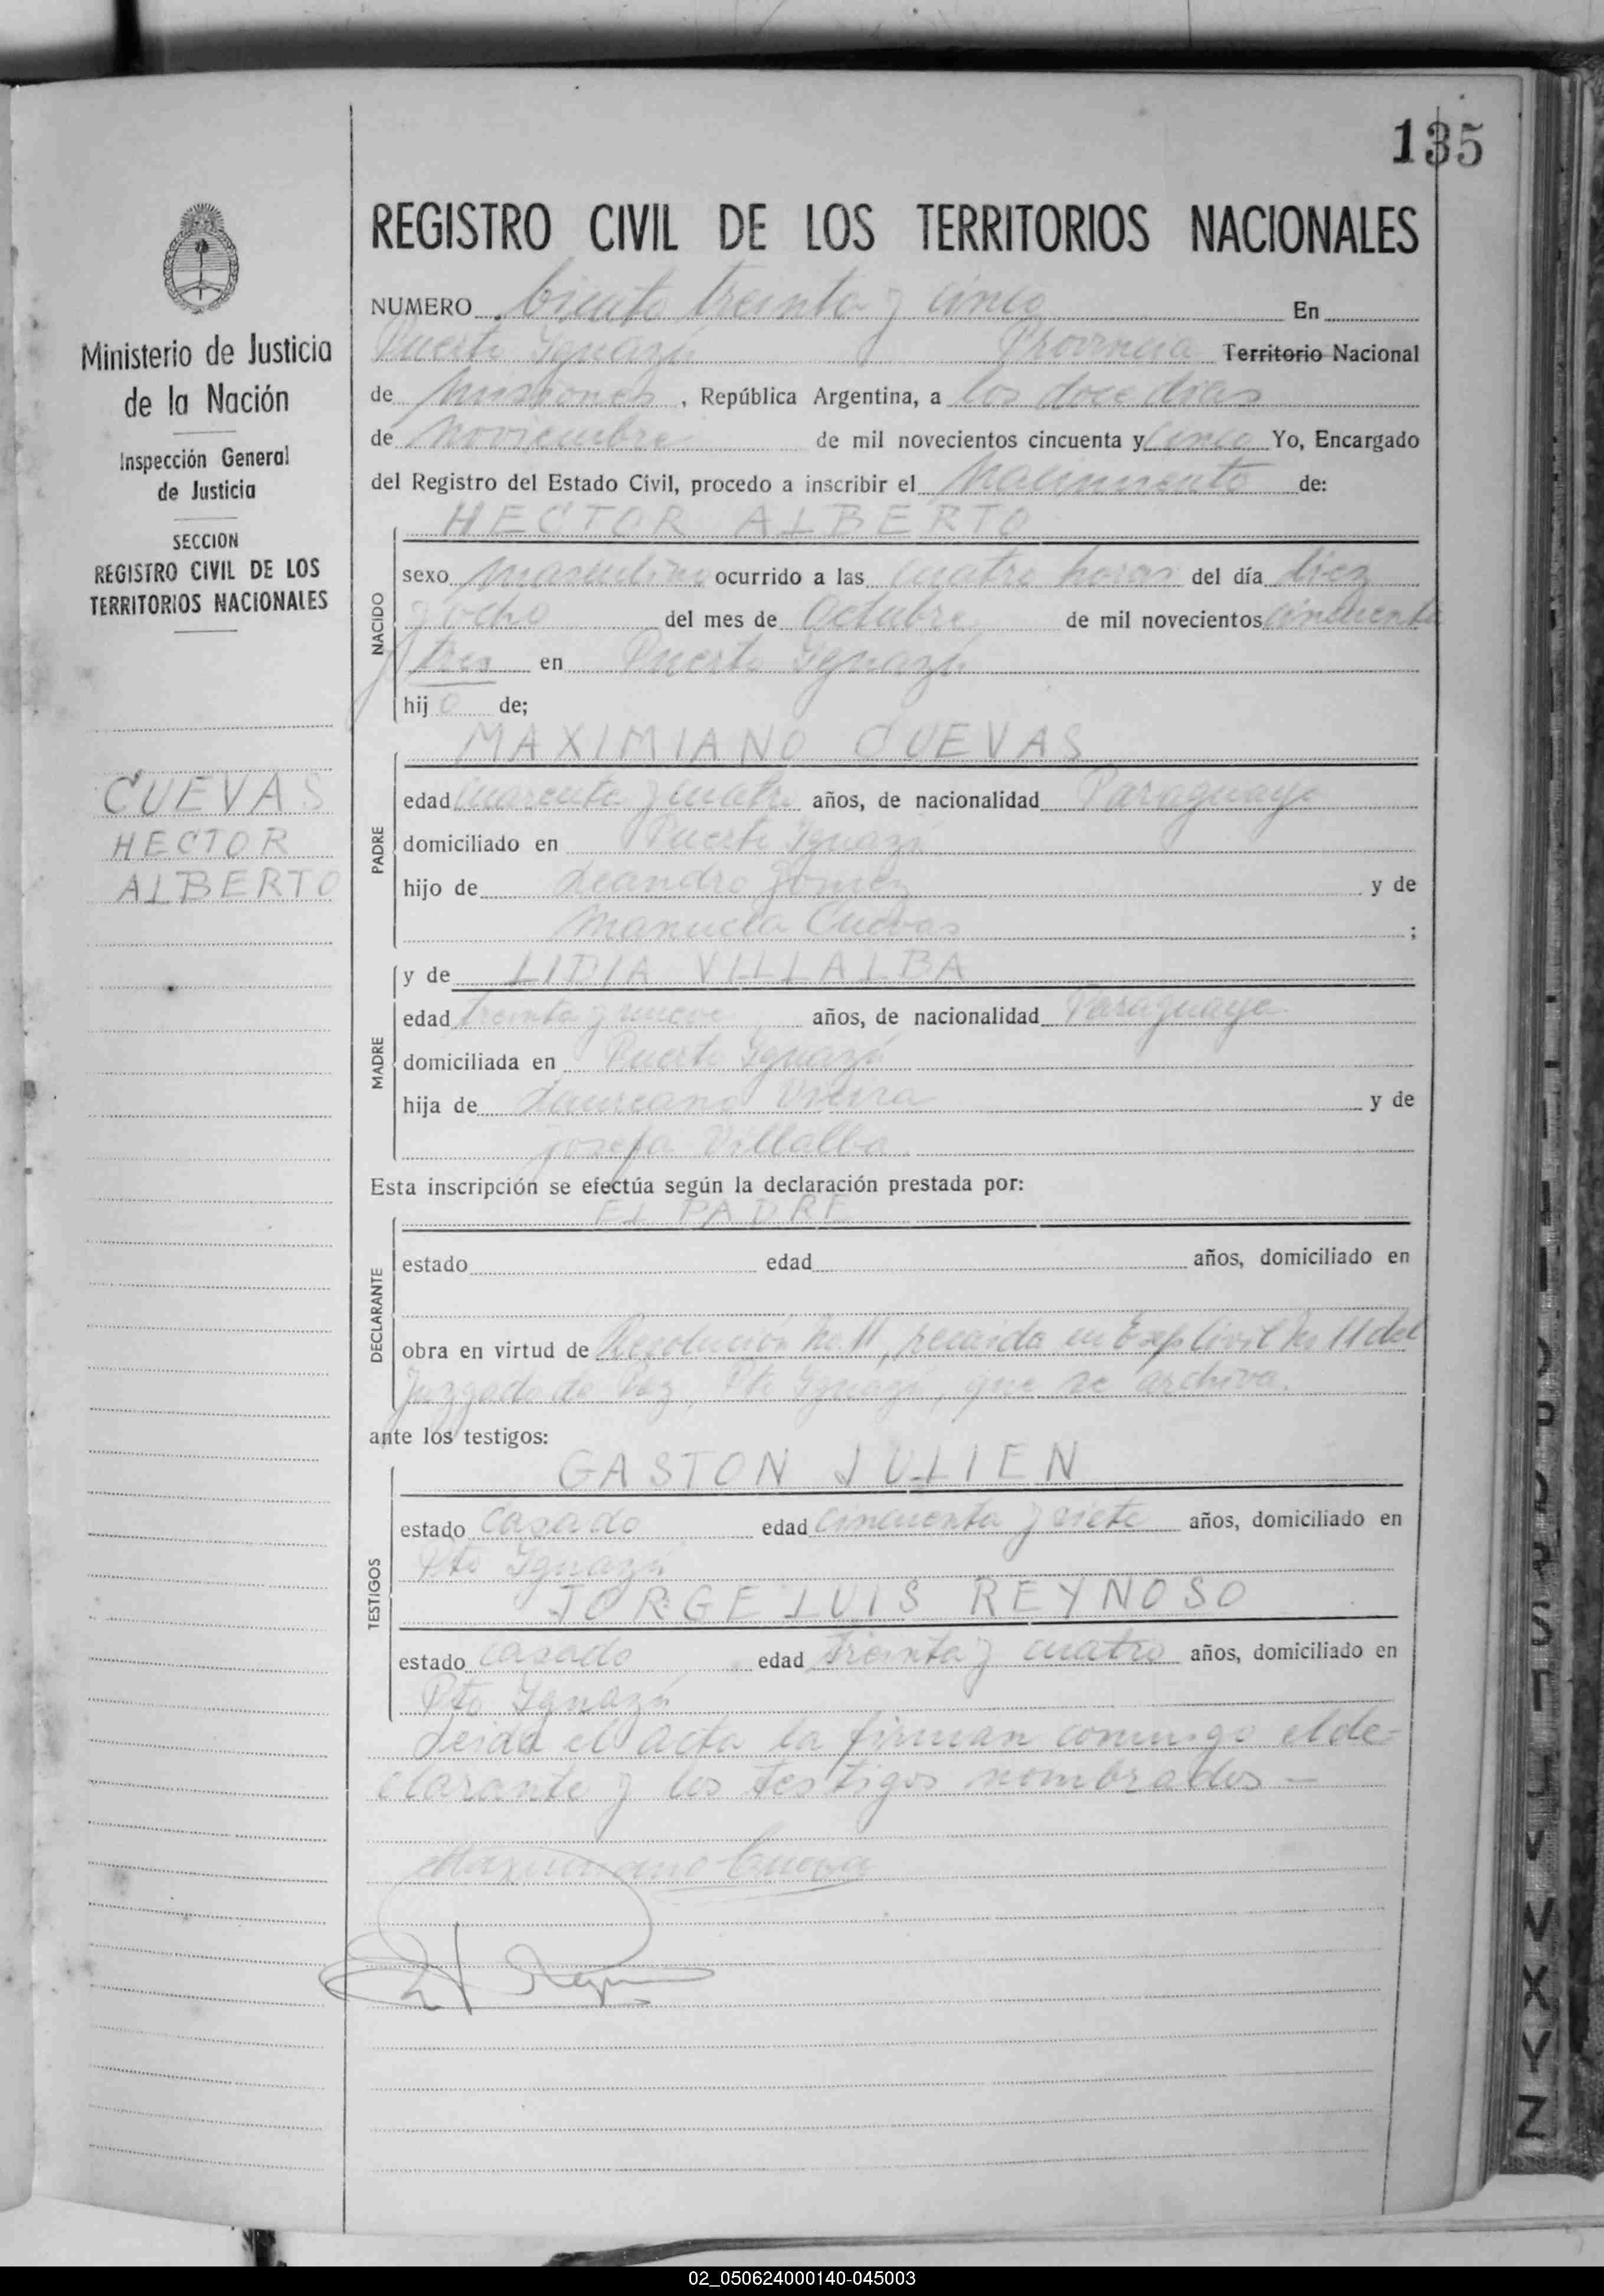 135
REGISTRO CIVIL DE LOS TERRITORIOS NACIONALES
NUMERO ciento treinta y cinco En
Puerto Iguazú Provincia Territorio Nacional
de Misiones, República Argentina, a los doce días
de Noviembre de mil novecientos cincuenta y cinco Yo, Encargado
del Registro del Estado Civil, procedo a inscribir el Nacimiento de:
HECTOR ALBERTO
NACIDO
sexo masculino ocurrido a las cuatro horas del día diez
y ocho del mes de Octubre de mil novecientos cincuenta
y tres en Puerto Iguazú
hijo de;
MAXIMIANO CUEVAS
PADRE
edad cuarenta y cuatro años, de nacionalidad Paraguayo
domiciliado en Puerto Iguazú
hijo de Leandro Gomez y de
Manuela Cuevas ;
y de LIDIA VILLALBA
MADRE
edad treinta y nueve años, de nacionalidad Paraguaya
domiciliada en Puerto Iguazú
hija de Laureano Vieira y de
Josefa Villalba
Esta inscripción se efectúa según la declaración prestada por:
EL PADRE
DECLARANTE
estado edad años, domiciliado en
obra en virtud de Resolución No. 11, recaida en Exp. Civil No 11 del
Juzgado de Paz, Pto Iguazú, que se archiva.
ante los testigos:
GASTON JULIEN
TESTIGOS
estado casado edad cincuenta y siete años, domiciliado en
Pto Iguazú
JORGE LUIS REYNOSO
estado casado edad treinta y cuatro años, domiciliado en
Pto Iguazú
Leida el acta la firman conmigo el de-
clarante y los testigos nombrados -
Maximiano Cueva
Ministerio de Justicia
de la Nación
Inspección General
de Justicia
SECCION
REGISTRO CIVIL DE LOS
TERRITORIOS NACIONALES
CUEVAS
HECTOR
ALBERTO
V
X
Y
Z
02_050624000140-045003